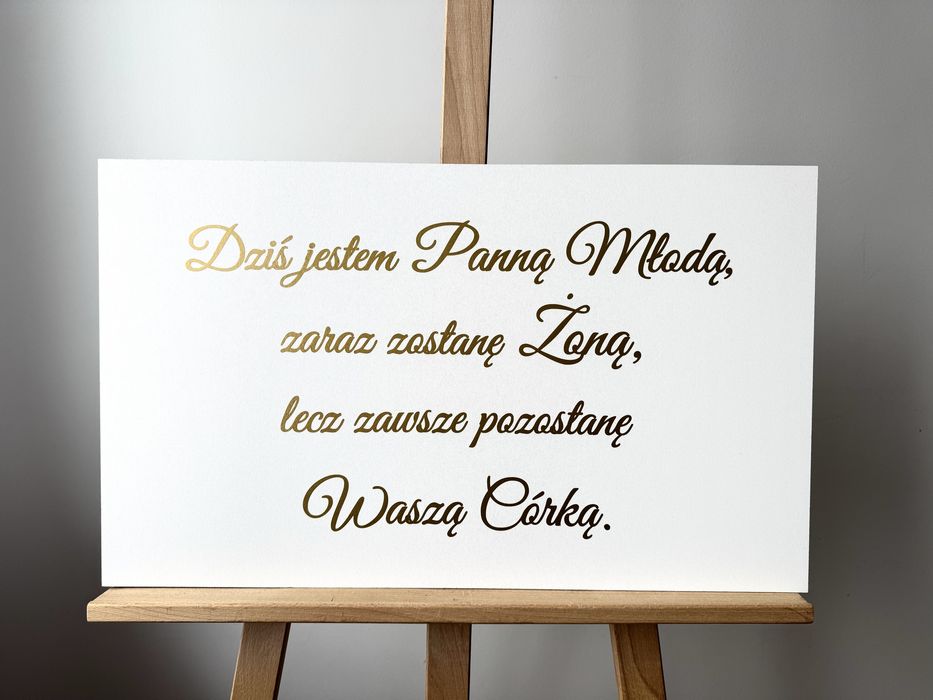 Dziś jestem Panną Młodą,
zaraz zostanę Żoną,
lecz zawsze pozostanę
Waszą Córką.